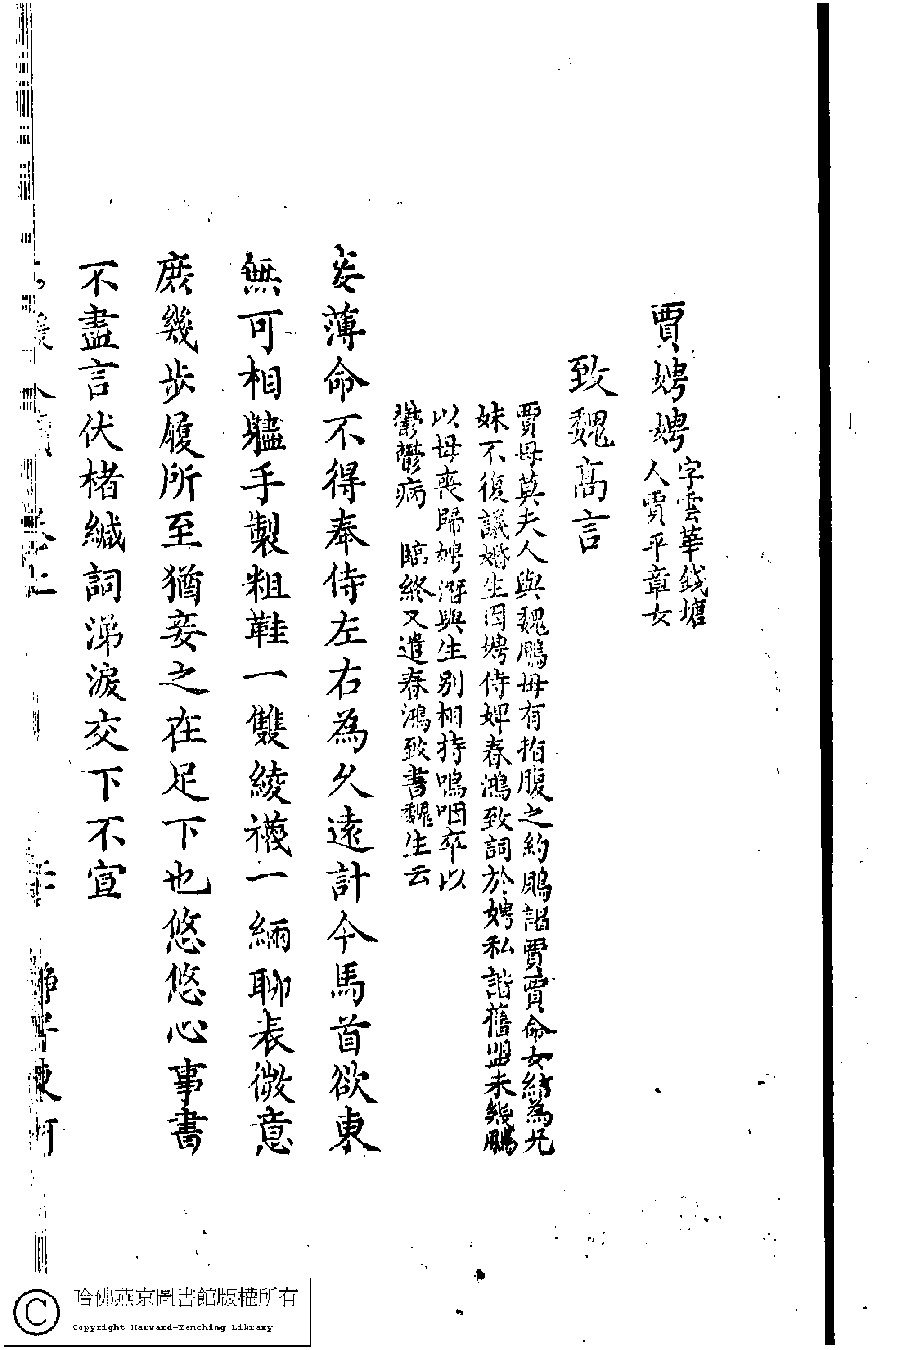 賈娉娉
字雲華錢塘
人賈平章女
致魏寓言
賈母莫夫人與魏鵬母有指腹之約鵬謁賈賈命女結為兄
妹不復議婚生因娉侍婢春鴻致詞於娉私諧舊盟未幾鵬
以母喪歸娉潛與生别相持嗚咽卒以
鬱鬱病 臨終又遣春鴻致書魏生云
妾薄命不得奉侍左右為久遠計今馬首欲東
無可相贐手製粗鞋一雙綾襪一緉聊表微意
庶幾步履所至猶妾之在足下也悠悠心事書
不盡言伏楮緘詞涕淚交下不宣
哈佛燕京圖書館版權所有
Copyright Harvard-Yenching Library